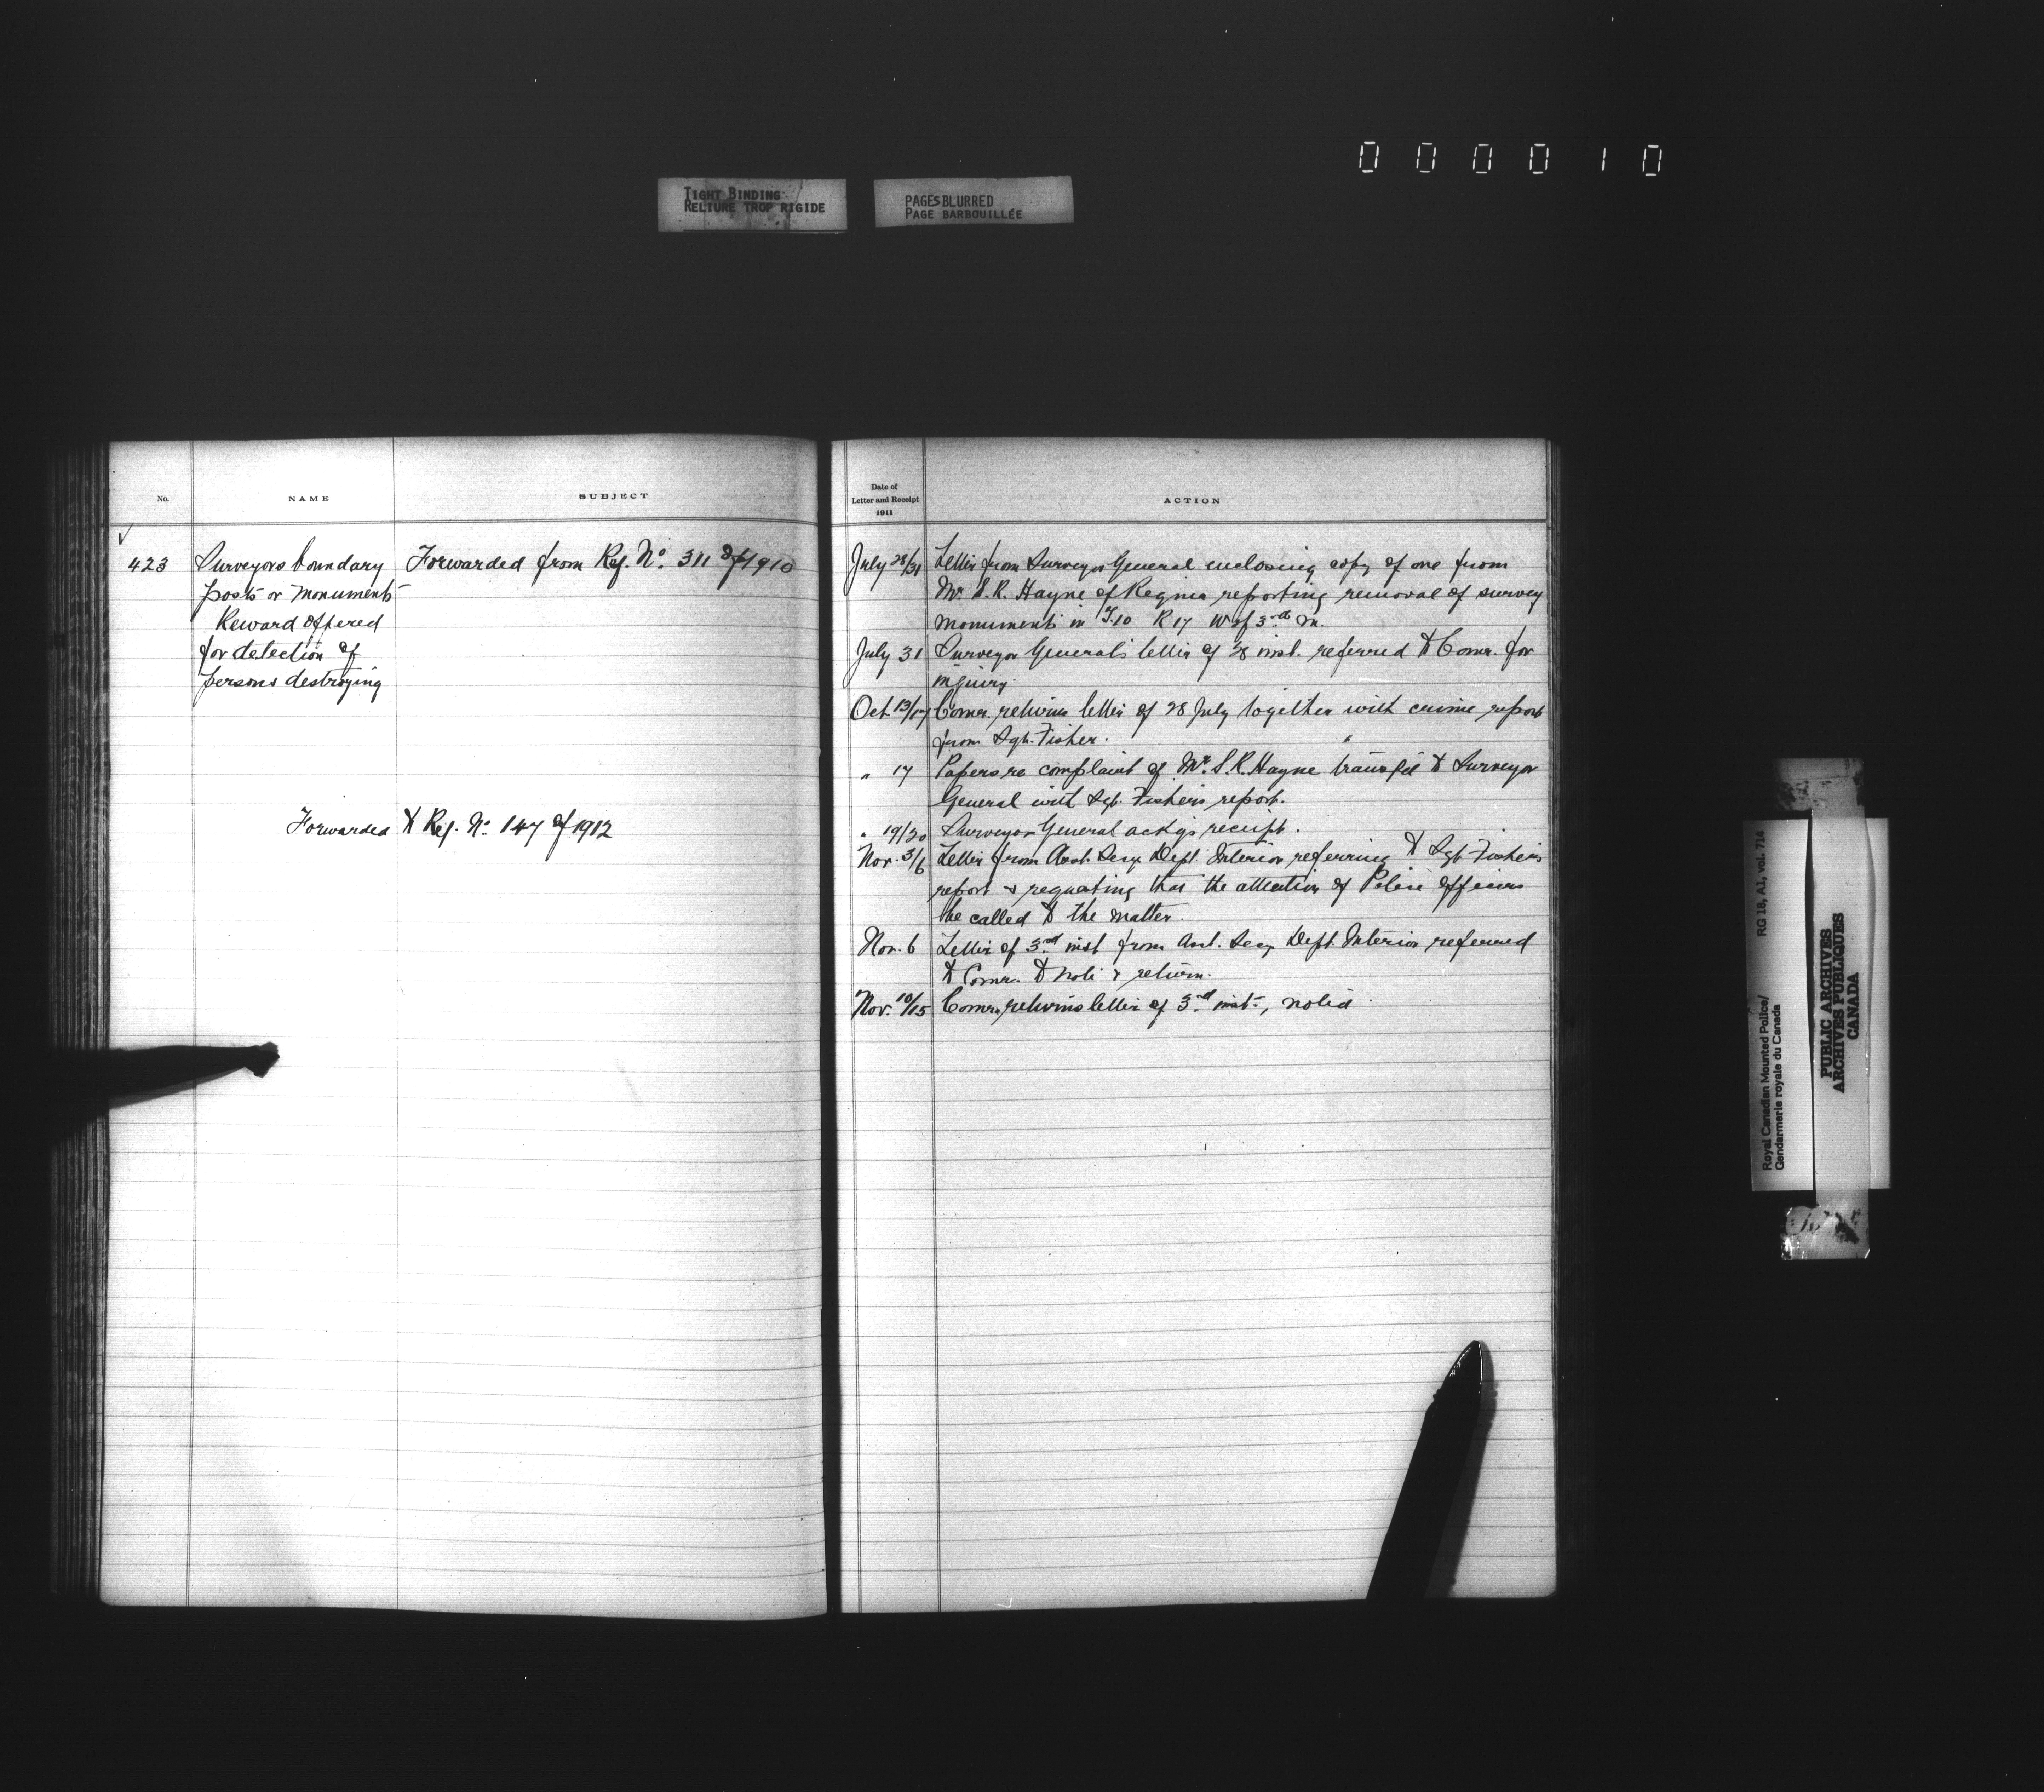 000010
TIGHT BINDING
RELIURE TROP RIGIDE
PAGES BLURRED
PAGE BARBOUILLÉE
No. NAME SUBJECT
✓
423 Surveyors boundary Forwarded from Ref. No. 311 of 1910
posts or monuments
Reward offered
for detection of
persons destroying
Forwarded to Ref. No. 147 of 1912
Date of
Letter and Receipt ACTION
1911
July 28/31 Letter from Surveyor General enclosing copy of one from
Mr. S. R. Hayne of Regina reporting removal of survey
monuments in T.10 R 17 W of 3rd M.
July 31 Surveyor General's letter of 28 inst. referred to Comr. for
inquiry.
Oct 13/17 Comr. returns letter of 28 July together with crime report
from Sgt. Fisher.
" 17 Papers re complaint of Mr. S. R. Hayne transf'd to Surveyor
General with Sgt. Fisher's report.
" 19/20 Surveyor General ackg's receipt.
Nov. 3/6 Letter from Asst. Secy. Dept Interior referring to Sgt. Fisher's
report & requesting that the attention of Police officers
be called to the matter.
Nov. 6 Letter of 3rd inst from Asst. Secy Dept. Interior referred
to Comr. to note & return.
Nov. 10/15 Comr. returns letter of 3rd inst., noted.
Royal Canadian Mounted Police/
Gendarmerie royale du Canada
RG 18, A1, vol. 714
PUBLIC ARCHIVES
ARCHIVES PUBLIQUES
CANADA